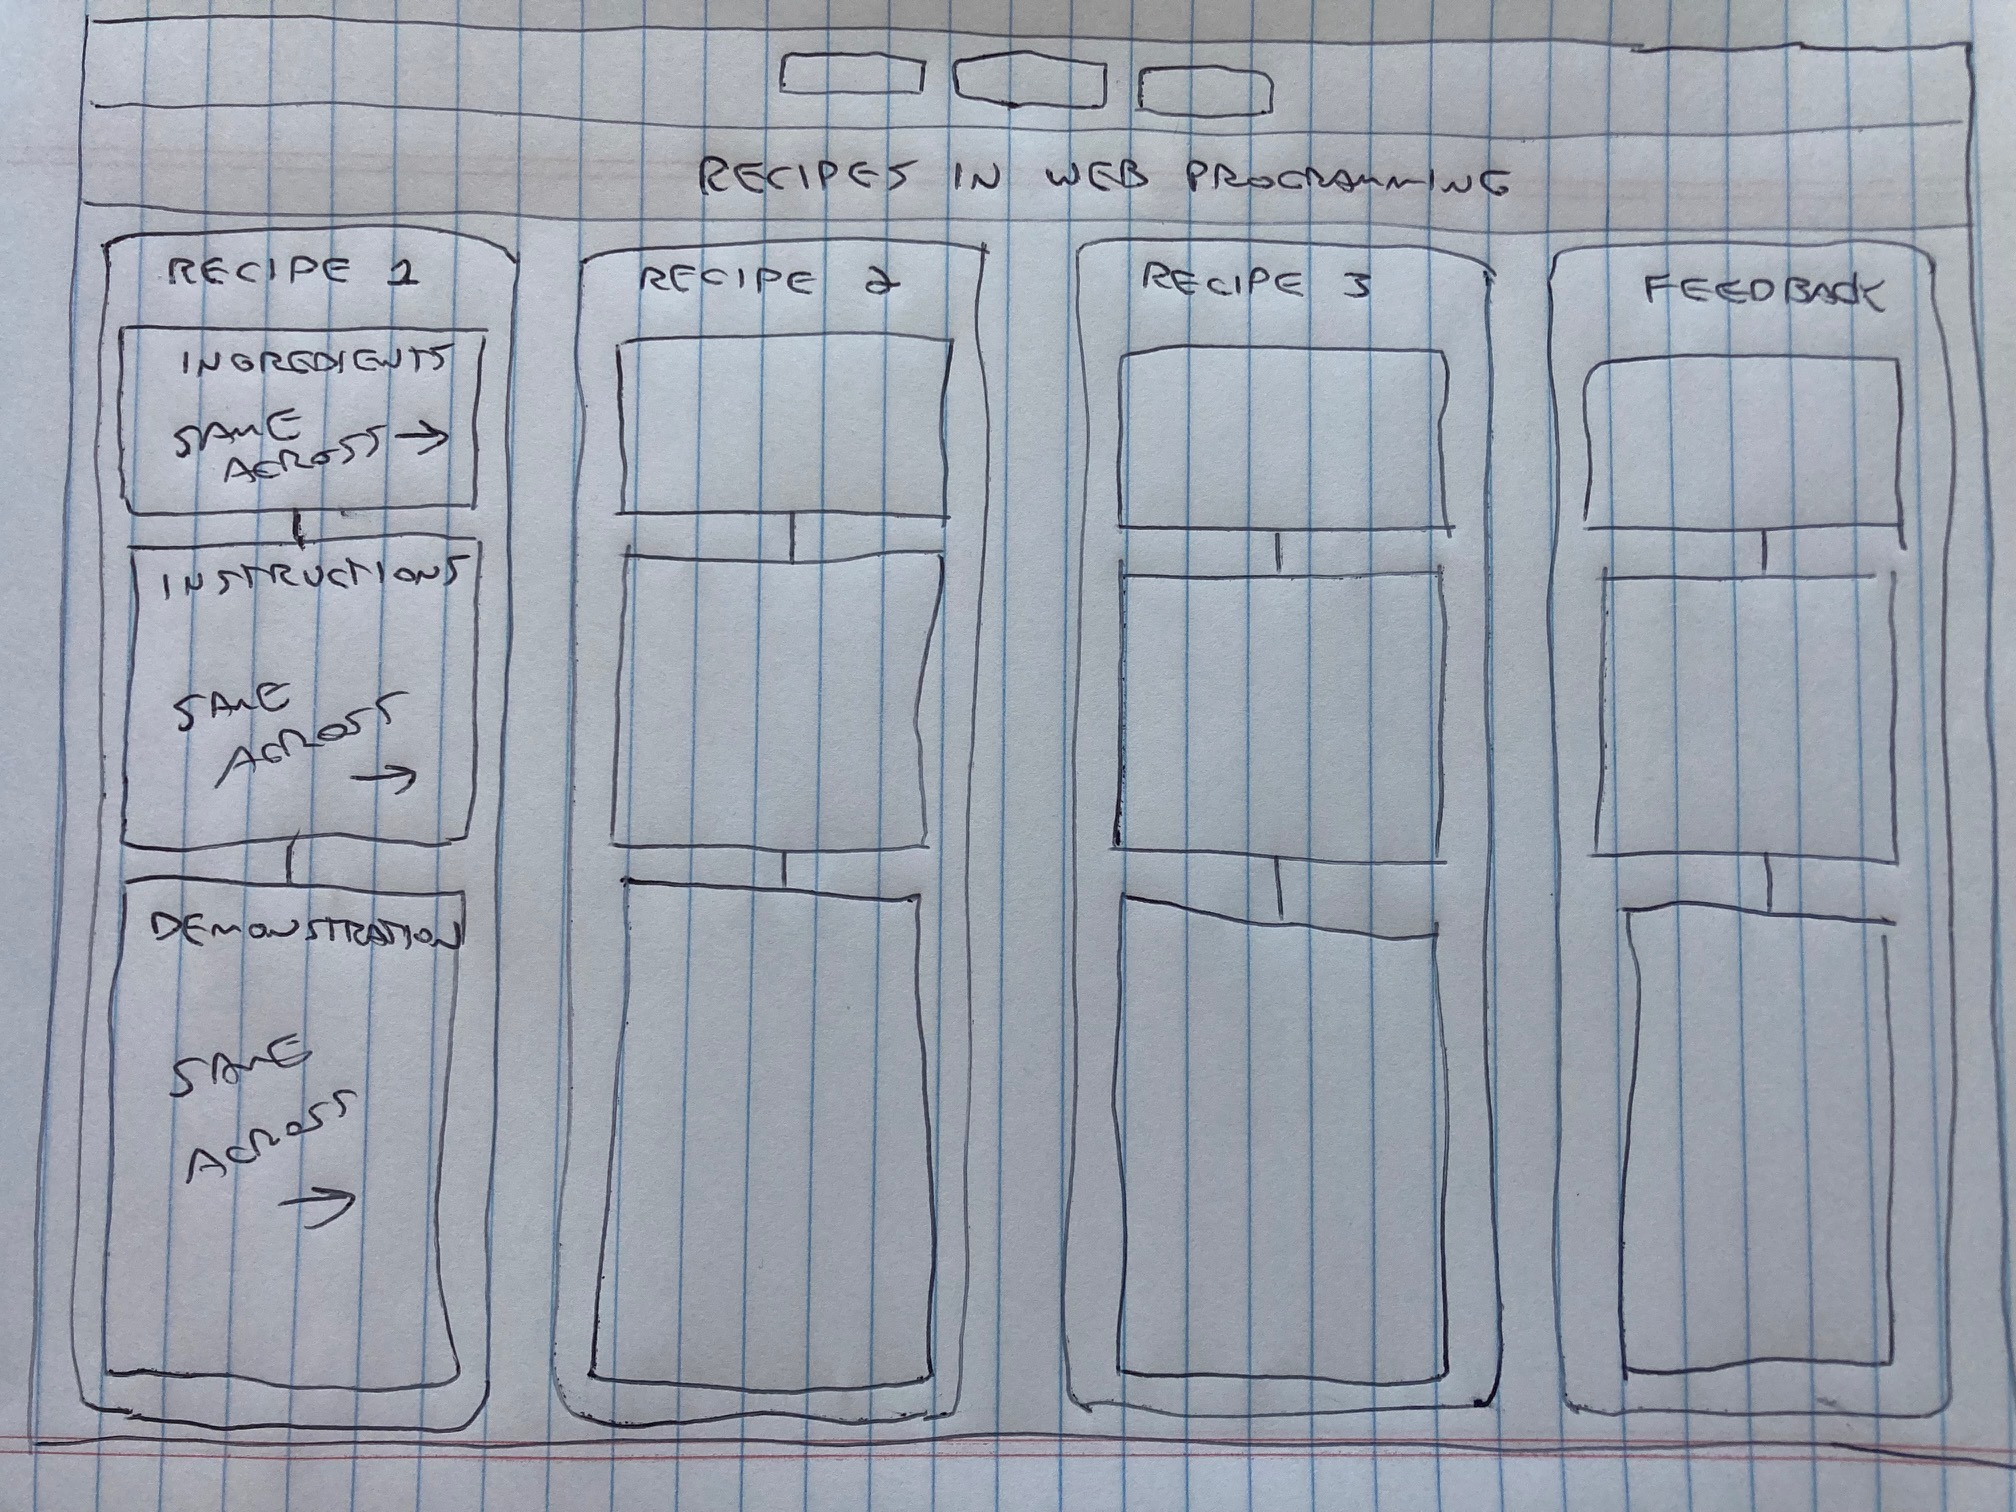 RECIPES IN WEB PROGRAMMING
RECIPE 1
INGREDIENTS
SAME
ACROSS →
INSTRUCTIONS
SAME
ACROSS
→
DEMONSTRATION
SAME
ACROSS
→
RECIPE 2
RECIPE 3
FEEDBACK